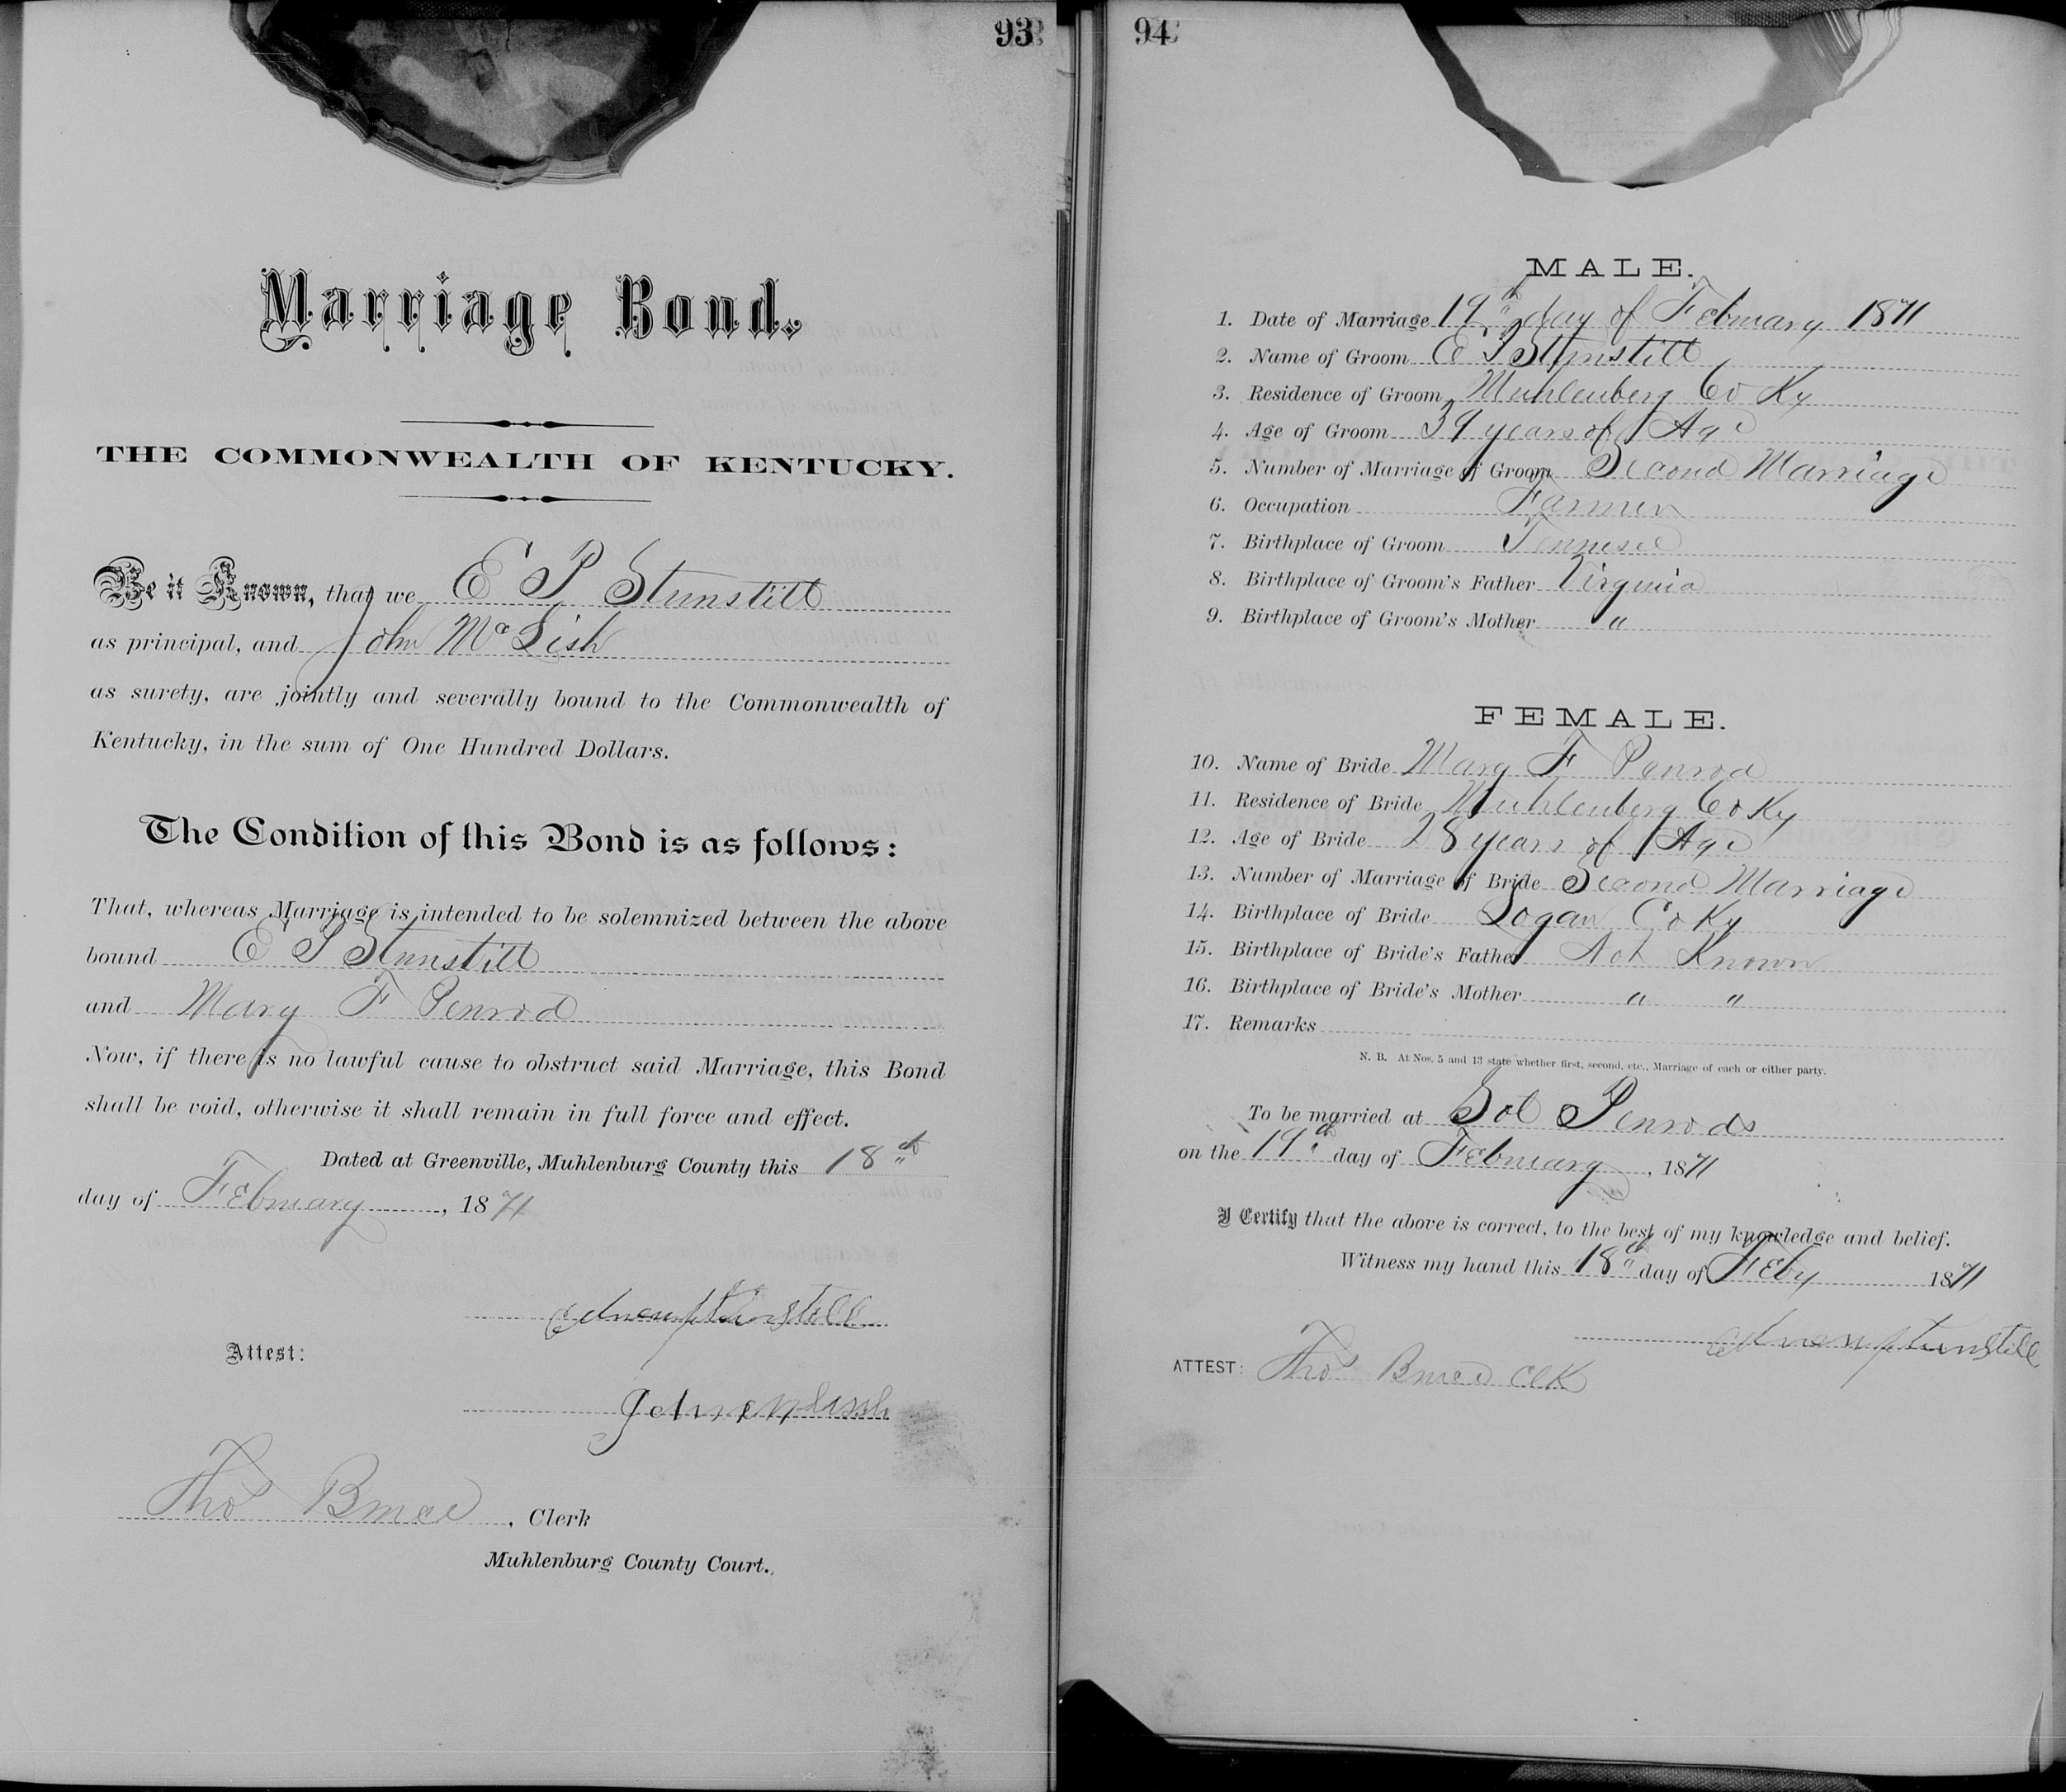 93
Marriage Bond.
THE COMMONWEALTH OF KENTUCKY.
Be it Known, that we E P Stunstill
as principal, and John McLish
as surety, are jointly and severally bound to the Commonwealth of
Kentucky, in the sum of One Hundred Dollars.
The Condition of this Bond is as follows:
That, whereas Marriage is intended to be solemnized between the above
bound E P Stunstill
and Mary F Penrod
Now, if there is no lawful cause to obstruct said Marriage, this Bond
shall be void, otherwise it shall remain in full force and effect.
Dated at Greenville, Muhlenburg County this 18th
day of February, 1871
Attest:
Tho Bruce, Clerk
Muhlenburg County Court.
94
MALE.
1. Date of Marriage 19th day of February 1871
2. Name of Groom E P Stunstill
3. Residence of Groom Muhlenberg Co Ky
4. Age of Groom 39 years of Age
5. Number of Marriage of Groom Second Marriage
6. Occupation Farmer
7. Birthplace of Groom Tennesee
8. Birthplace of Groom's Father Virginia
9. Birthplace of Groom's Mother "
FEMALE.
10. Name of Bride Mary F Penrod
11. Residence of Bride Muhlenberg Co Ky
12. Age of Bride 28 years of Age
13. Number of Marriage of Bride Second Marriage
14. Birthplace of Bride Logan Co Ky
15. Birthplace of Bride's Father Not Known
16. Birthplace of Bride's Mother " "
17. Remarks
N. B. At Nos. 5 and 13 state whether first, second, etc., Marriage of each or either party.
To be married at Sol Penrods
on the 19th day of February, 1871
I Certify that the above is correct, to the best of my knowledge and belief.
Witness my hand this 18th day of Feby 1871
ATTEST: Tho Bruce Clk